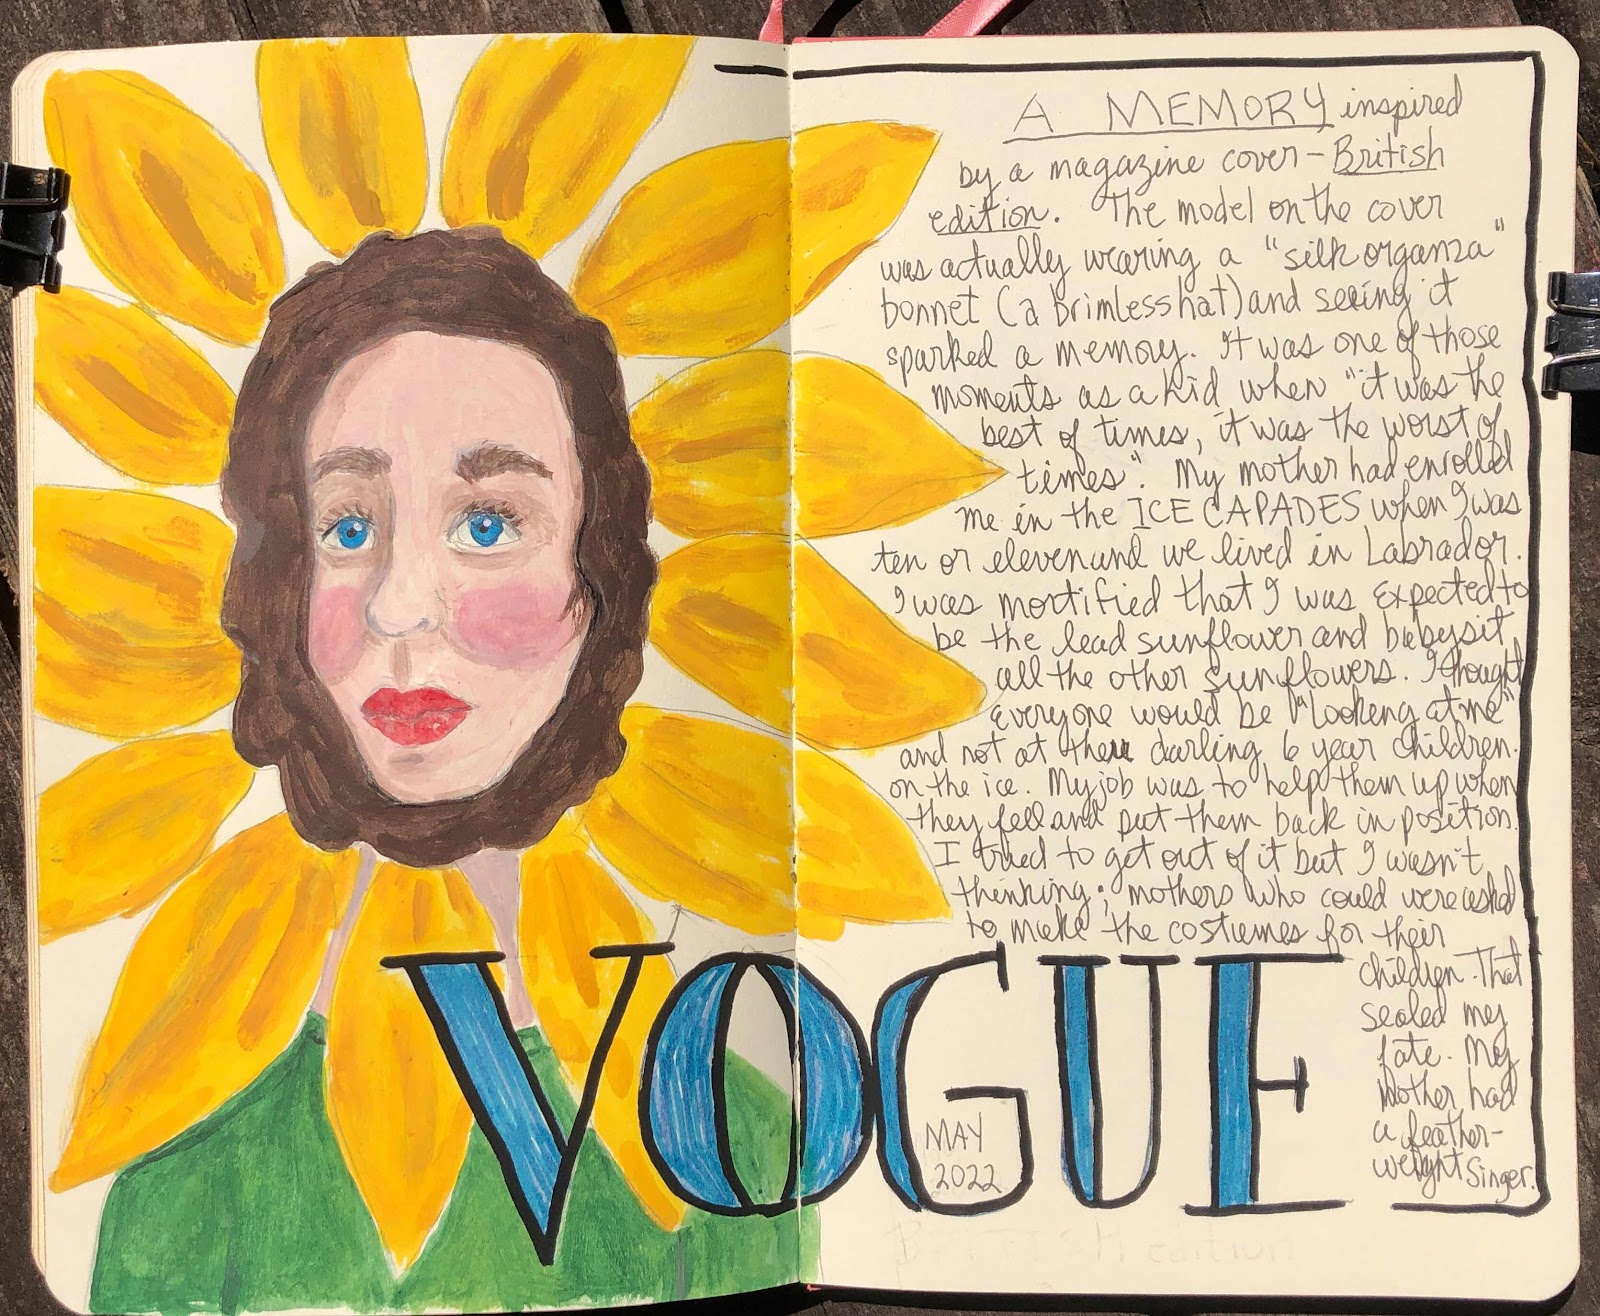 A MEMORY inspired
by a magazine cover - British
edition. The model on the cover
was actually wearing a "silk organza"
bonnet (a brimless hat) and seeing it
sparked a memory. It was one of those
moments as a kid when "it was the
best of times, it was the worst of
times". My mother had enrolled
me in the ICE CAPADES when I was
ten or eleven and we lived in Labrador.
I was mortified that I was expected to
be the lead sunflower and babysit
all the other sunflowers. I thought
everyone would be "Lookeng at me"
and not at the darling 6 year children.
on the ice. My job was to help them up when
they fell and put them back in position.
I tried to get out of it but I wasn't
thinking; mothers who could were asked
to make the costumes for their
children. That
sealed my
fate. My
Mother had
a feather-
weight Singer.
VOGUE
MAY
2022
BRITISH edition